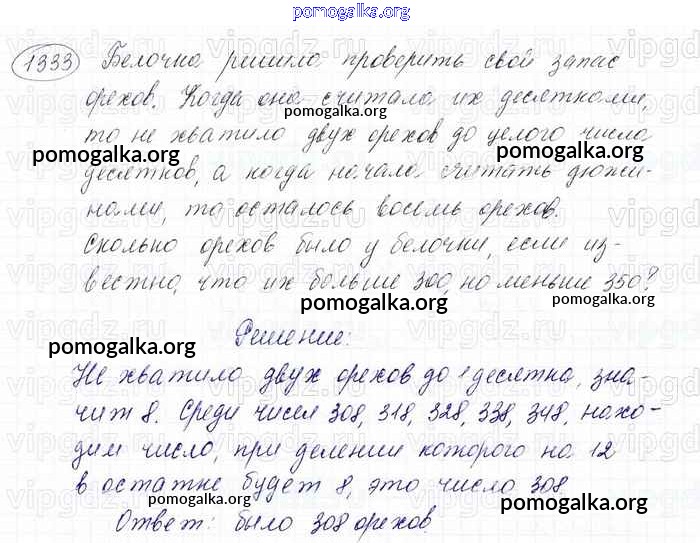 pomogalka.org
1333 Белочка решила проверить свой запас
орехов. Когда она считала их десятками,
pomogalka.org
то не хватило двух орехов до целого числа
pomogalka.org pomogalka.org
десятков, а когда начала считать дюжи-
нами, то осталось восемь орехов.
pomogalka.org
Сколько орехов было у белочки, если из-
вестно, что их больше 300, но меньше 350?
pomogalka.org pomogalka.org
Решение:
pomogalka.org
Не хватило двух орехов до 1 десятка, зна-
pomogalka.org
чит 8. Среди чисел 308, 318, 328, 338, 348, нахо-
дим число, при делении которого на 12
pomogalka.org
в остатке будет 8, это число 308
pomogalka.org pomogalka.org
Ответ: было 308 орехов.